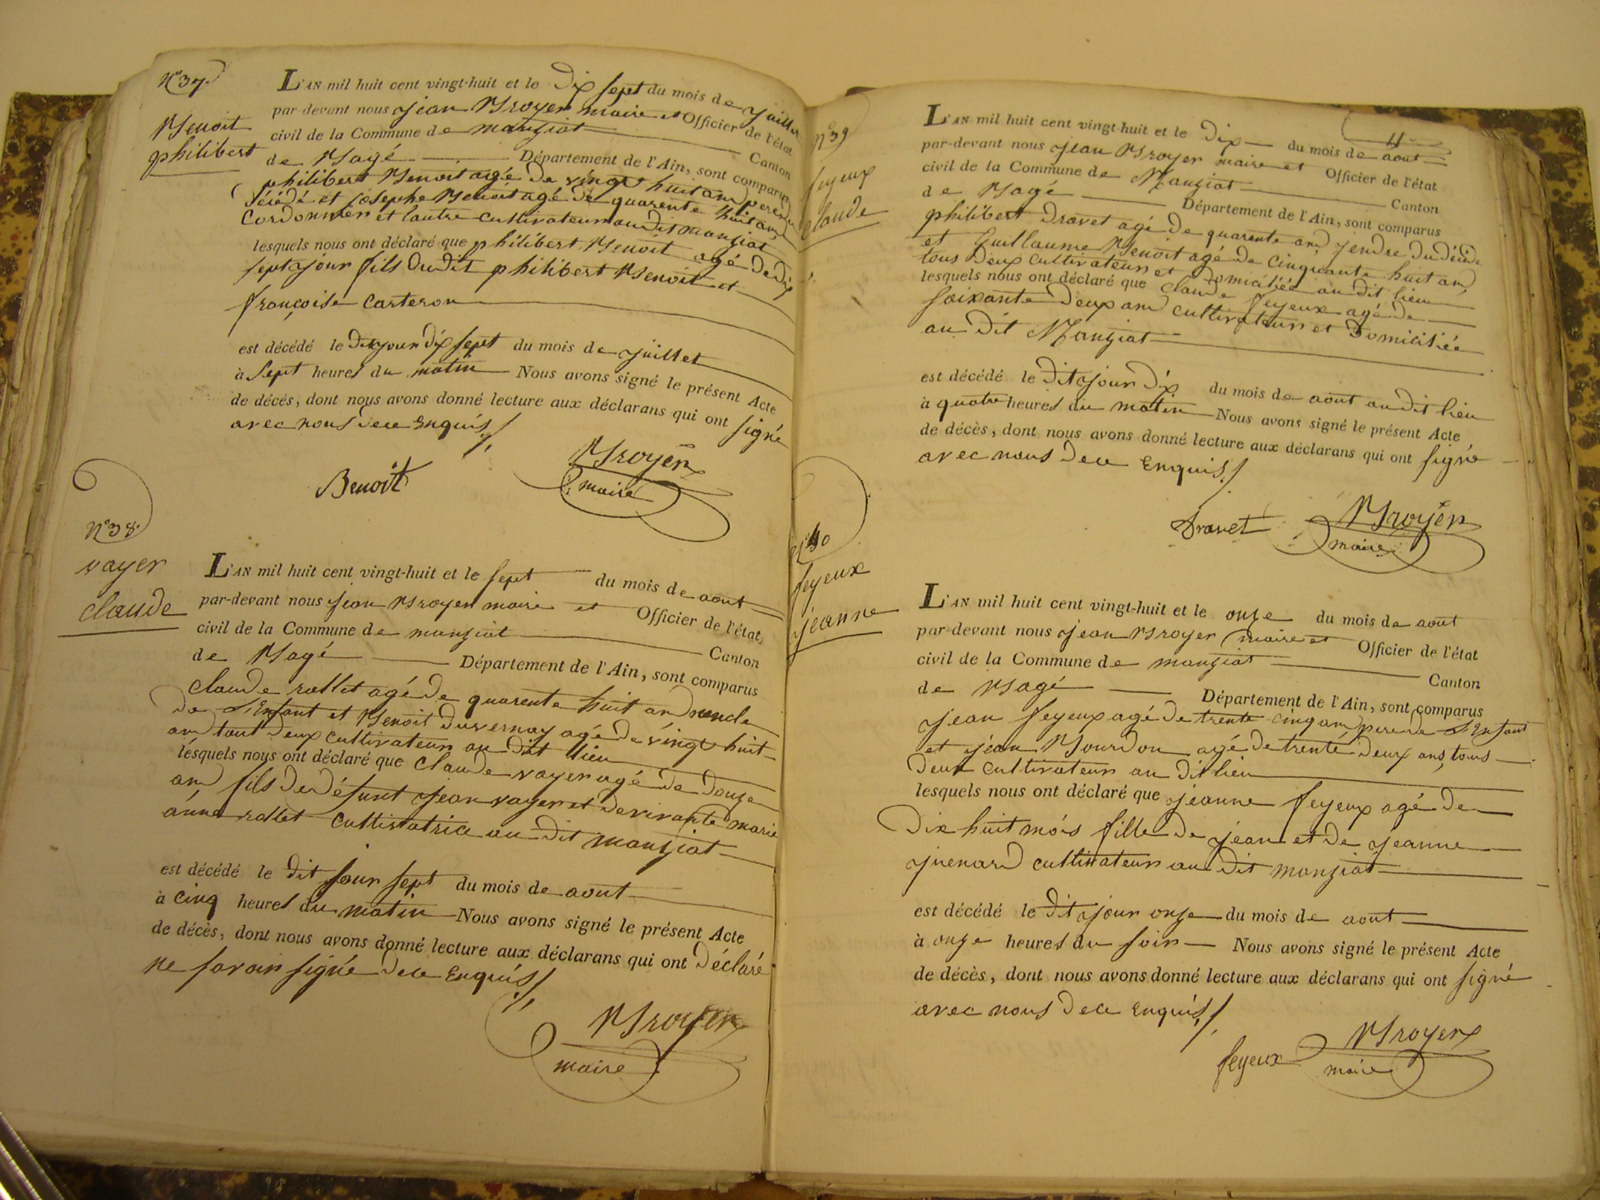 N° 37.
Benoit
philibert
L'AN mil huit cent vingt-huit et le dix sept du mois de juillet
par devant nous jean Broyer maire et Officier de l'état
civil de la Commune de manziat Canton
de Bagé Département de l'Ain, sont comparus
philibert Benoit agé de vingt huit ans pere du
décédé et josephe Benoit agé de quarente huit ans
cordonnier et lautre cultivateur au dit manziat
lesquels nous ont déclaré que philibert Benoit agé de dix
sept jour fils du dit philibert Benoit et
françoise carteron
est décédé le dit jour dix sept du mois de juillet
à sept heures du matin Nous avons signé le présent Acte
de décès, dont nous avons donné lecture aux déclarans qui ont signé
avec nous de ce Enquis
Benoit
Broyer
maire
N° 38.
vayer
claude
L'AN mil huit cent vingt-huit et le sept du mois de aout
par-devant nous jean Broyer maire et Officier de l'état
civil de la Commune de manziat Canton
de Bagé Département de l'Ain, sont comparus
claude rollet agé de quarente huit ans oncle
de L'Enfant et Benoit duvernay agé de vingt huit
ans tout deux cultivateurs au dit lieu
lesquels nous ont déclaré que claude vayer agé de douze
ans fils de défunt jean vayer et de vivante marie
anne rollet cultivatrice au dit manziat
est décédé le dit jour sept du mois de aout
à cinq heures du matin Nous avons signé le présent Acte
de décès, dont nous avons donné lecture aux déclarans qui ont déclaré
ne savoir signé de ce Enquis
Broyer
maire
N° 39
feyeux
claude
L'AN mil huit cent vingt-huit et le dix du mois de aout
par-devant nous jean Broyer maire et Officier de l'état
civil de la Commune de Manziat Canton
de Bagé Département de l'Ain, sont comparus
philibert dravet agé de quarente ans gendre du décédé
et Guillaume Benoit agé de cinquante huit ans
tous deux cultivateurs et domiciliée au dit lieu
lesquels nous ont déclaré que claude feyeux agé de
soixante deux ans cultivateur et Domiciliée
au dit Manziat
est décédé le dit jour dix du mois de aout au dit lieu
à quatre heures du matin Nous avons signé le présent Acte
de décès, dont nous avons donné lecture aux déclarans qui ont signé
avec nous de ce Enquis
Dravet
Broyer
maire
N° 40
feyeux
jeanne
L'AN mil huit cent vingt-huit et le onze du mois de aout
par-devant nous jean Broyer maire et Officier de l'état
civil de la Commune de manziat Canton
de Bagé Département de l'Ain, sont comparus
jean feyeux agé de trente cinq ans pere de L'Enfant
et jean Bourdon agé de trente deux ans, tous
deux cultivateurs au dit lieu
lesquels nous ont déclaré que jeanne feyeux agé de
Dix huit mois fille de jean et de jeanne
guenard cultivateurs au dit manziat
est décédé le dit jour onze du mois de aout
à onze heures du soir Nous avons signé le présent Acte
de décès, dont nous avons donné lecture aux déclarans qui ont signé
avec nous de ce Enquis
feyeux
Broyer
maire